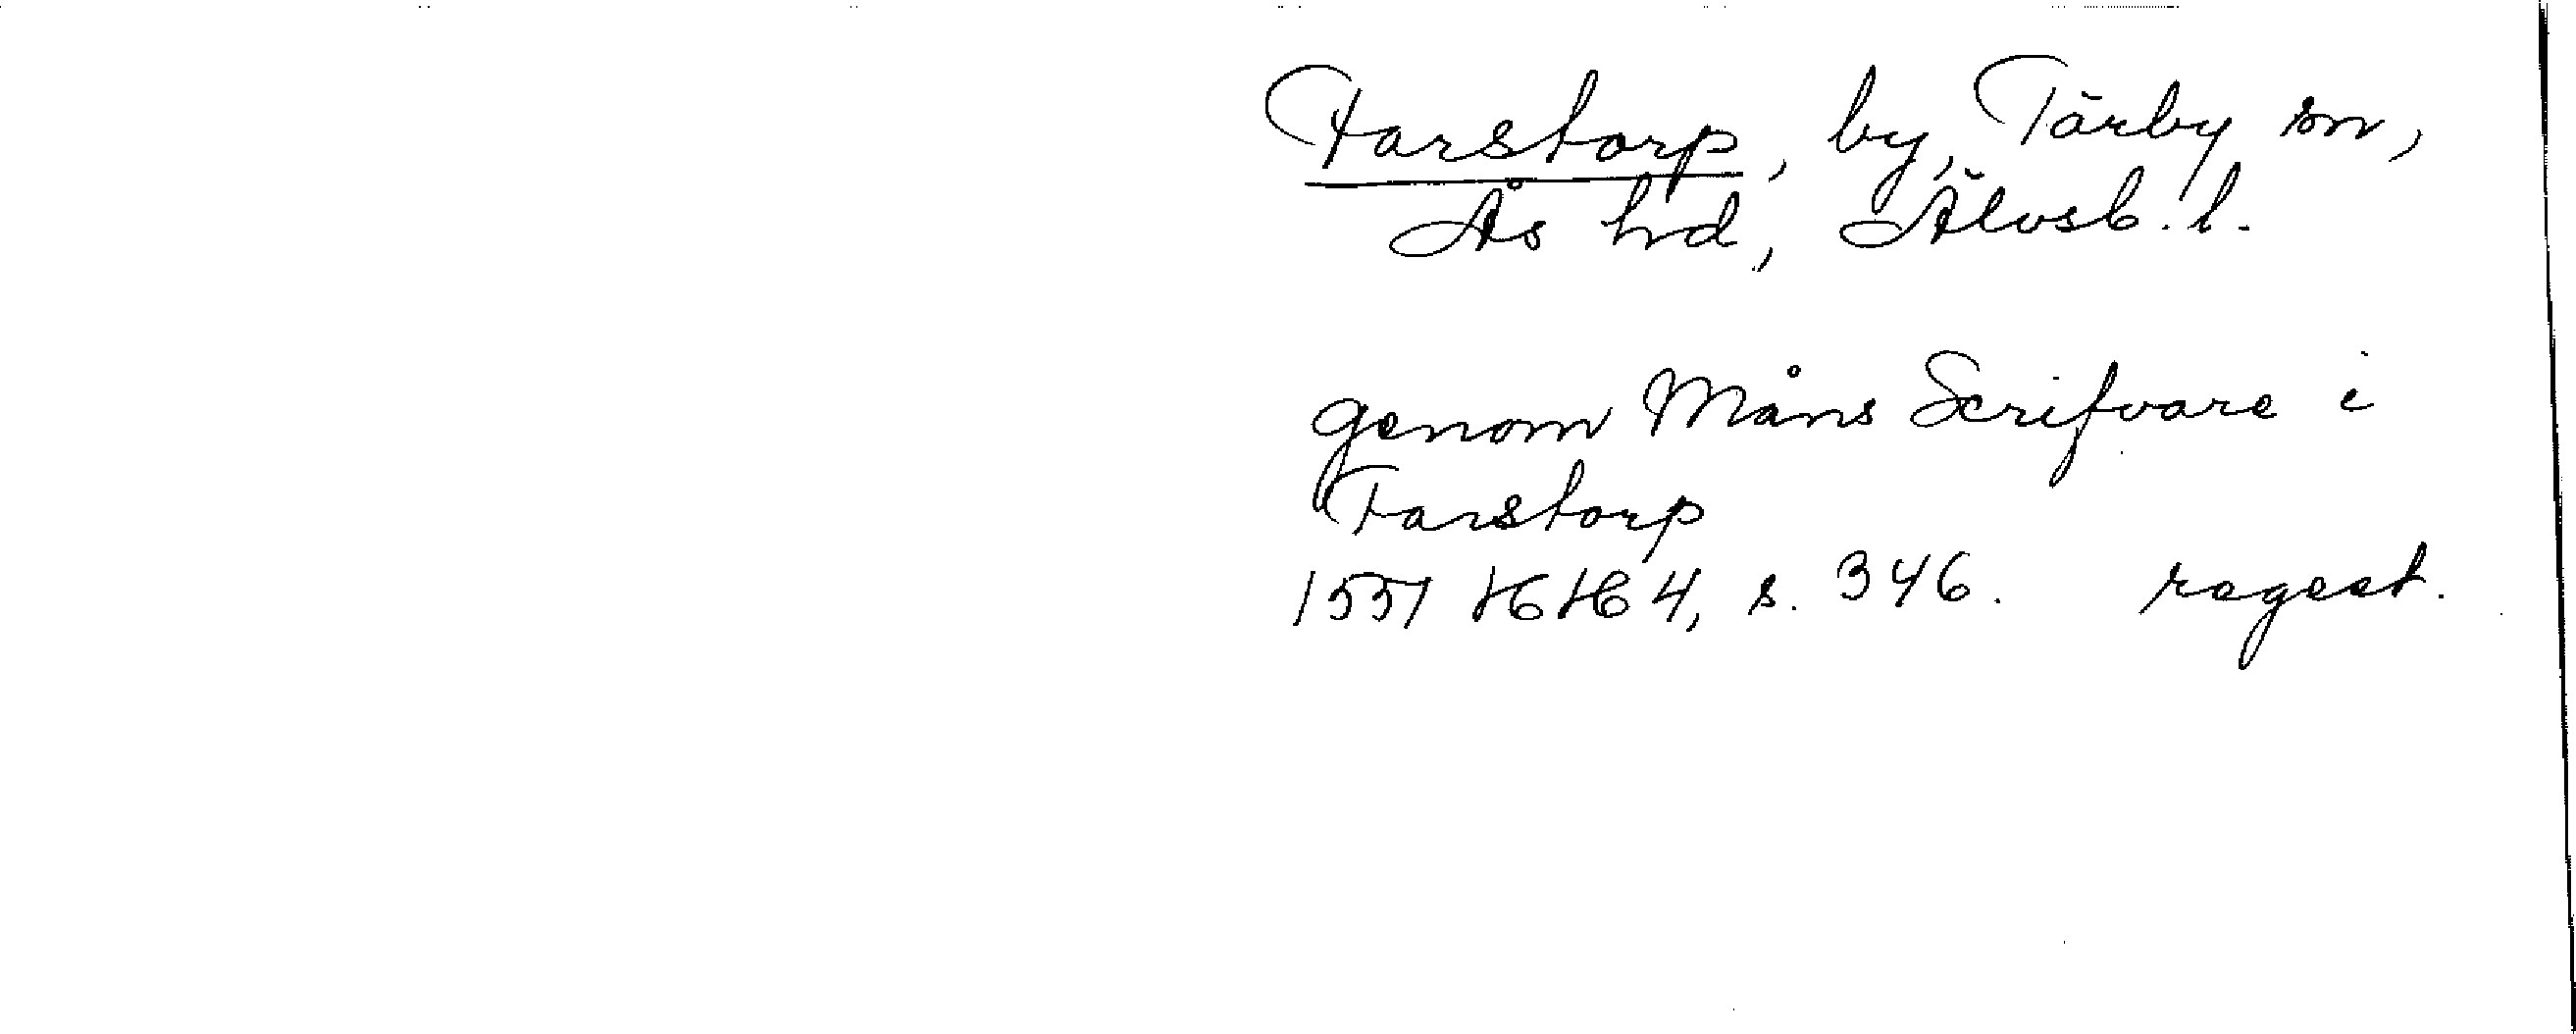 Farstorp, by, Tärby sn,
Ås hd, Älvsb. l.
genom Måns Scrifvare i
Farstorp
1551 HH 4, s. 346. regest.